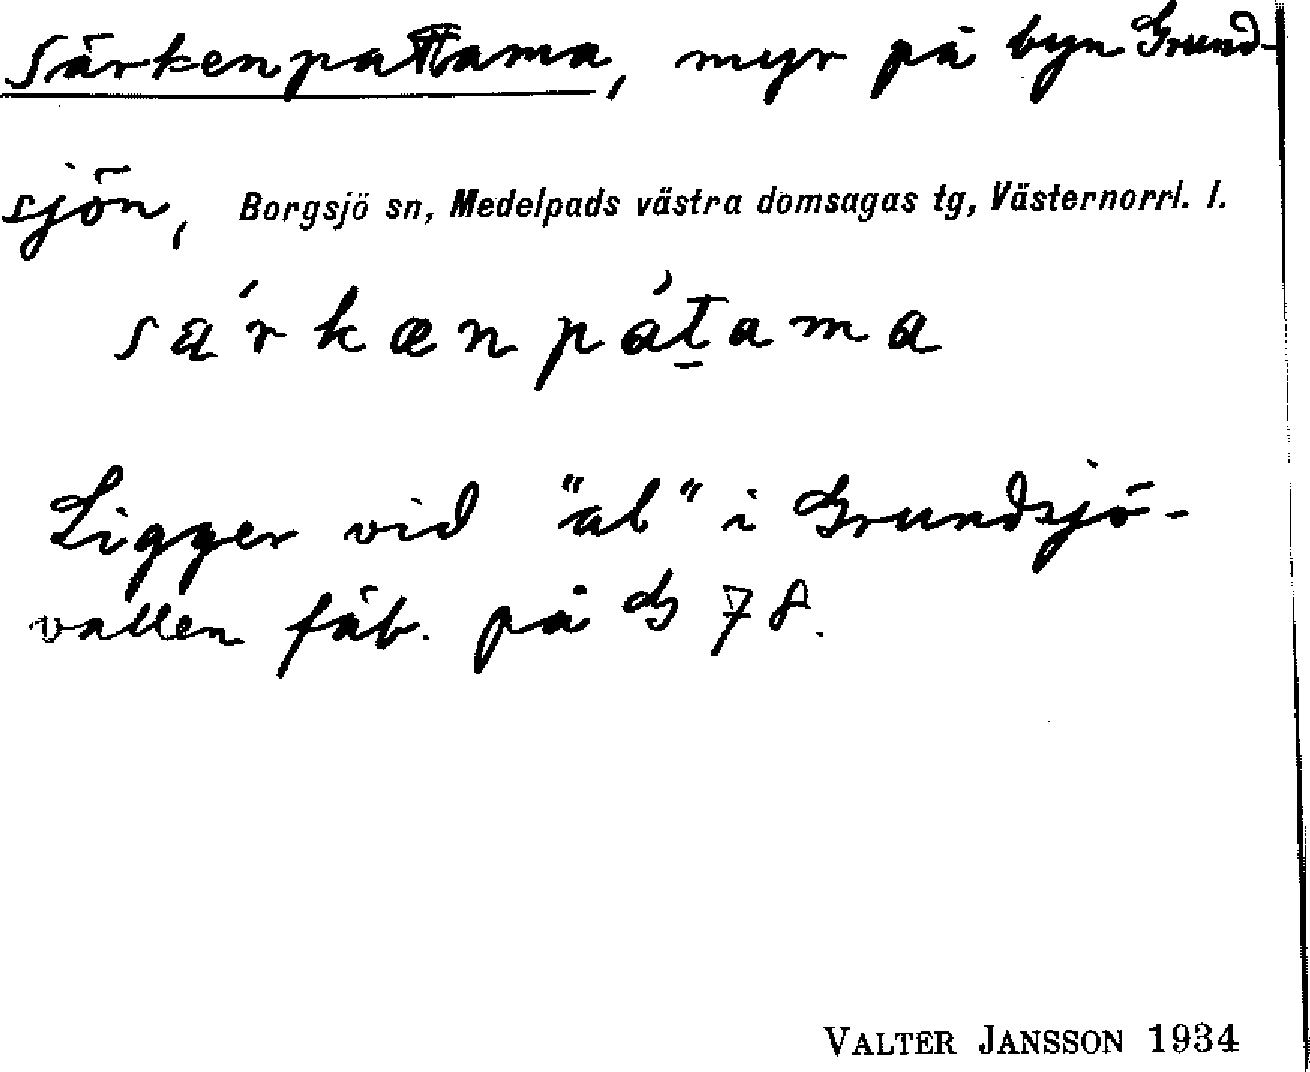 Särkenpattama, myr på byn Grund-
sjön, Borgsjö sn, Medelpads västra domsagas tg, Västernorrl. l.
sárkænpátama
Ligger vid "ab" i Grundsjö-
vallen fäb. på G 78.
VALTER JANSSON 1934